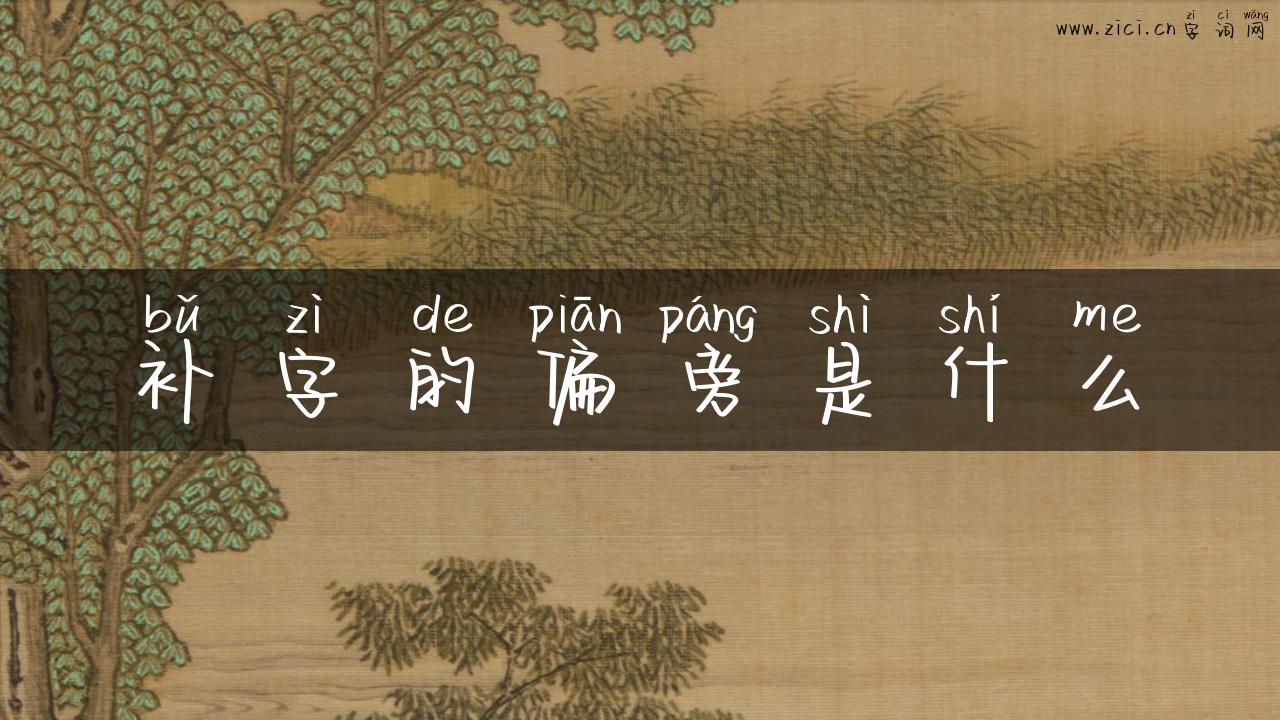 zì cí wǎng
www.zici.cn字词网
bǔ zì de piān páng shì shí me
补字的偏旁是什么